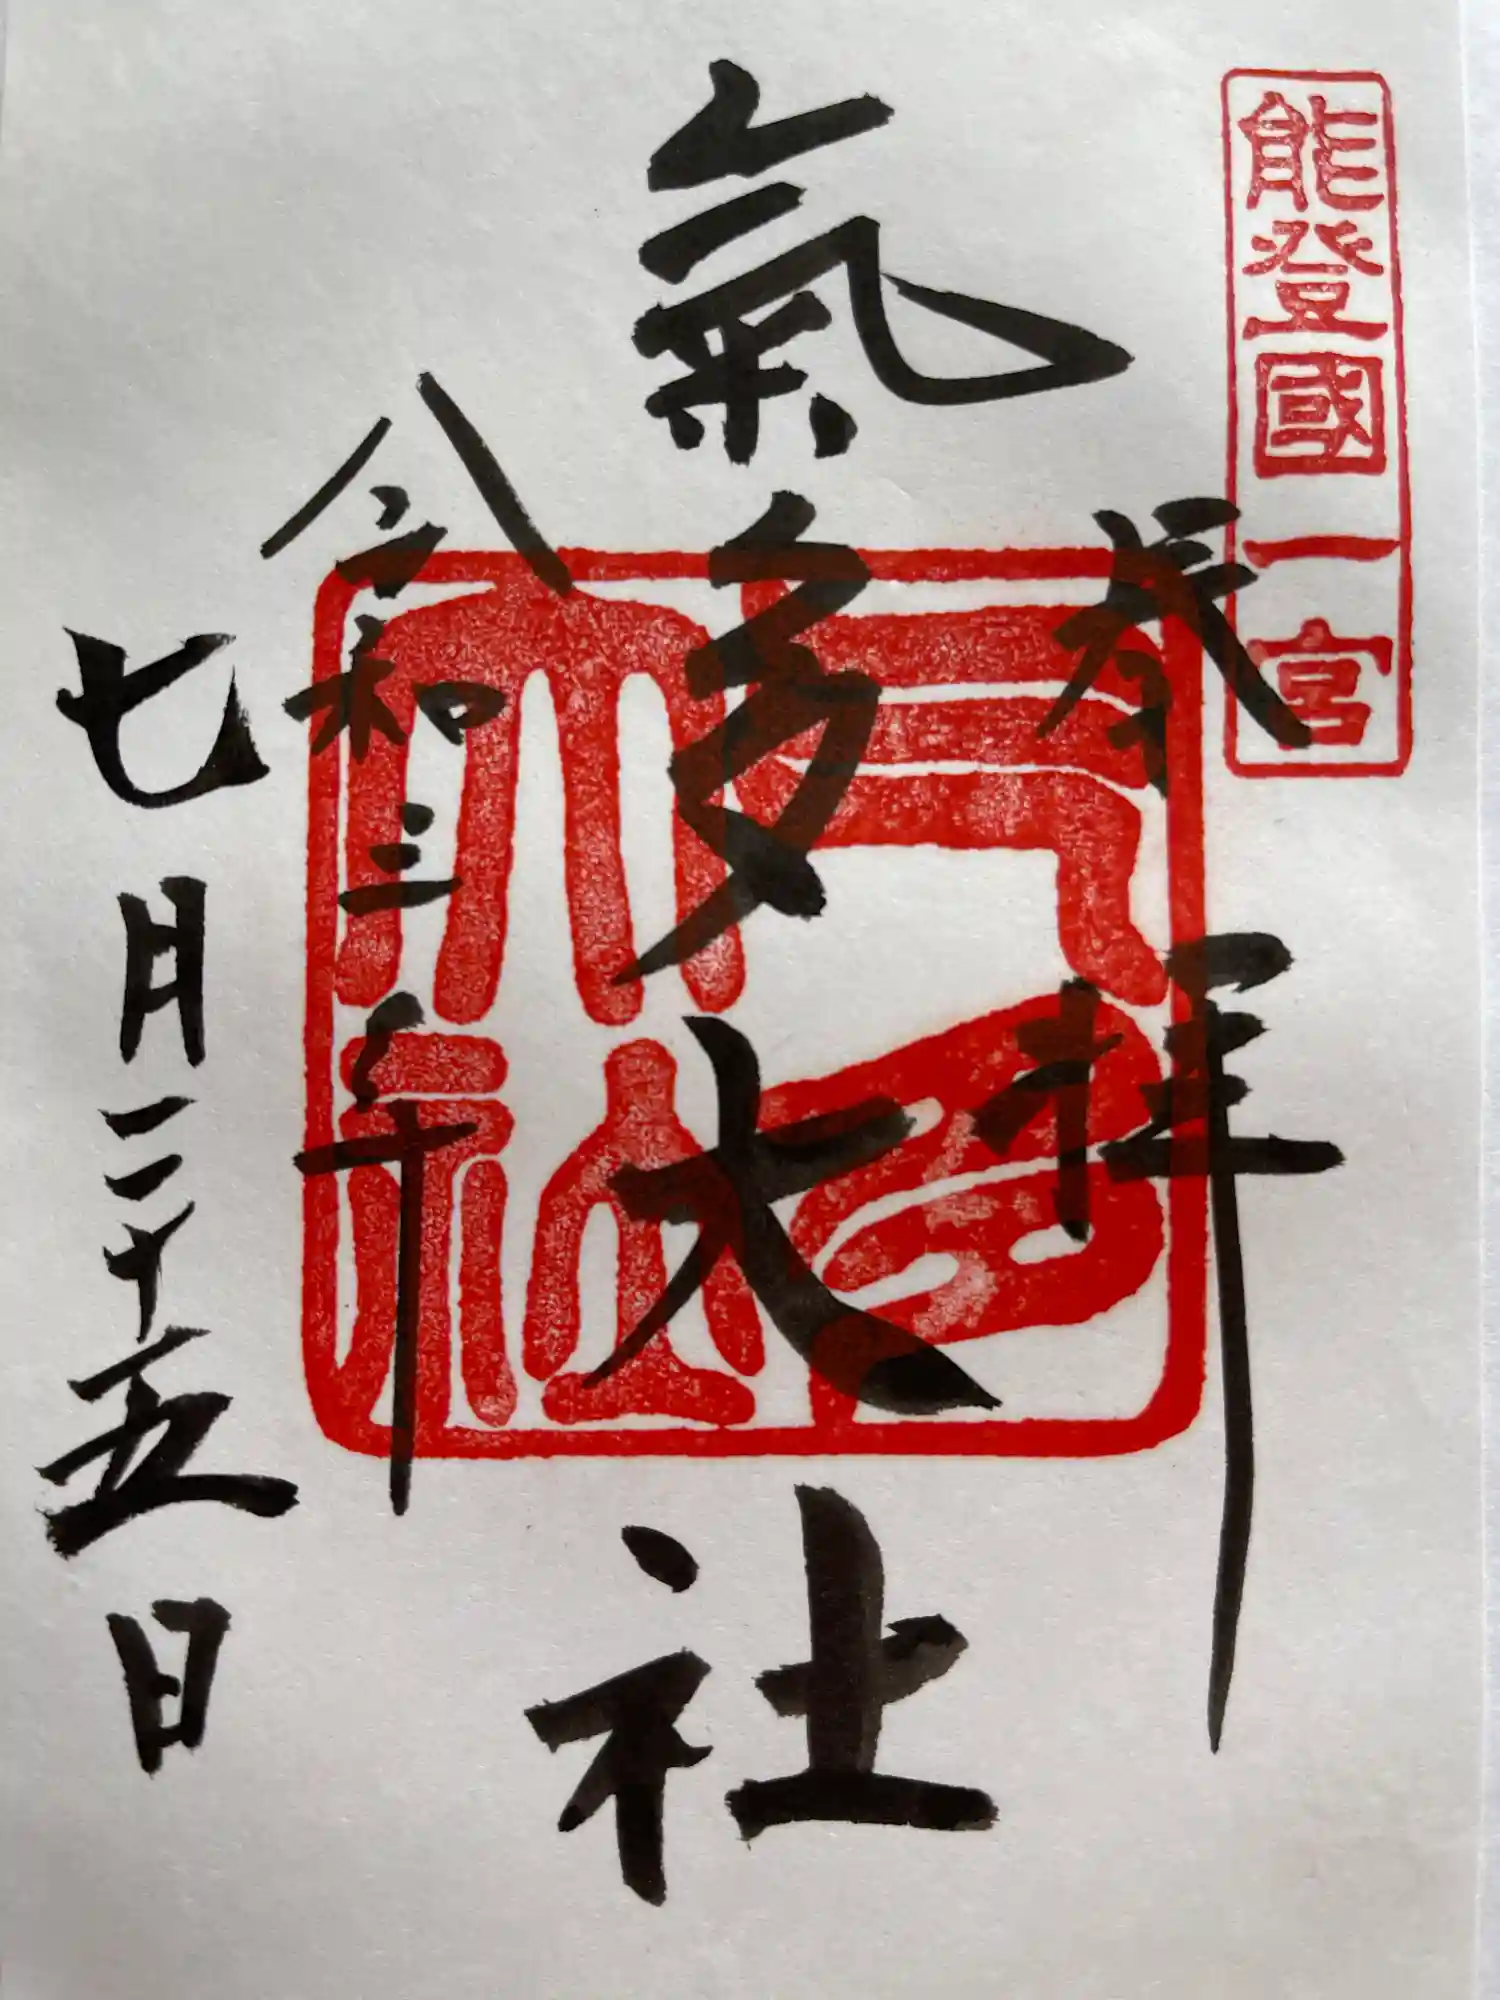 能登國一宮
奉拝
氣多大社
氣多大社
令和三年
七月二十五日